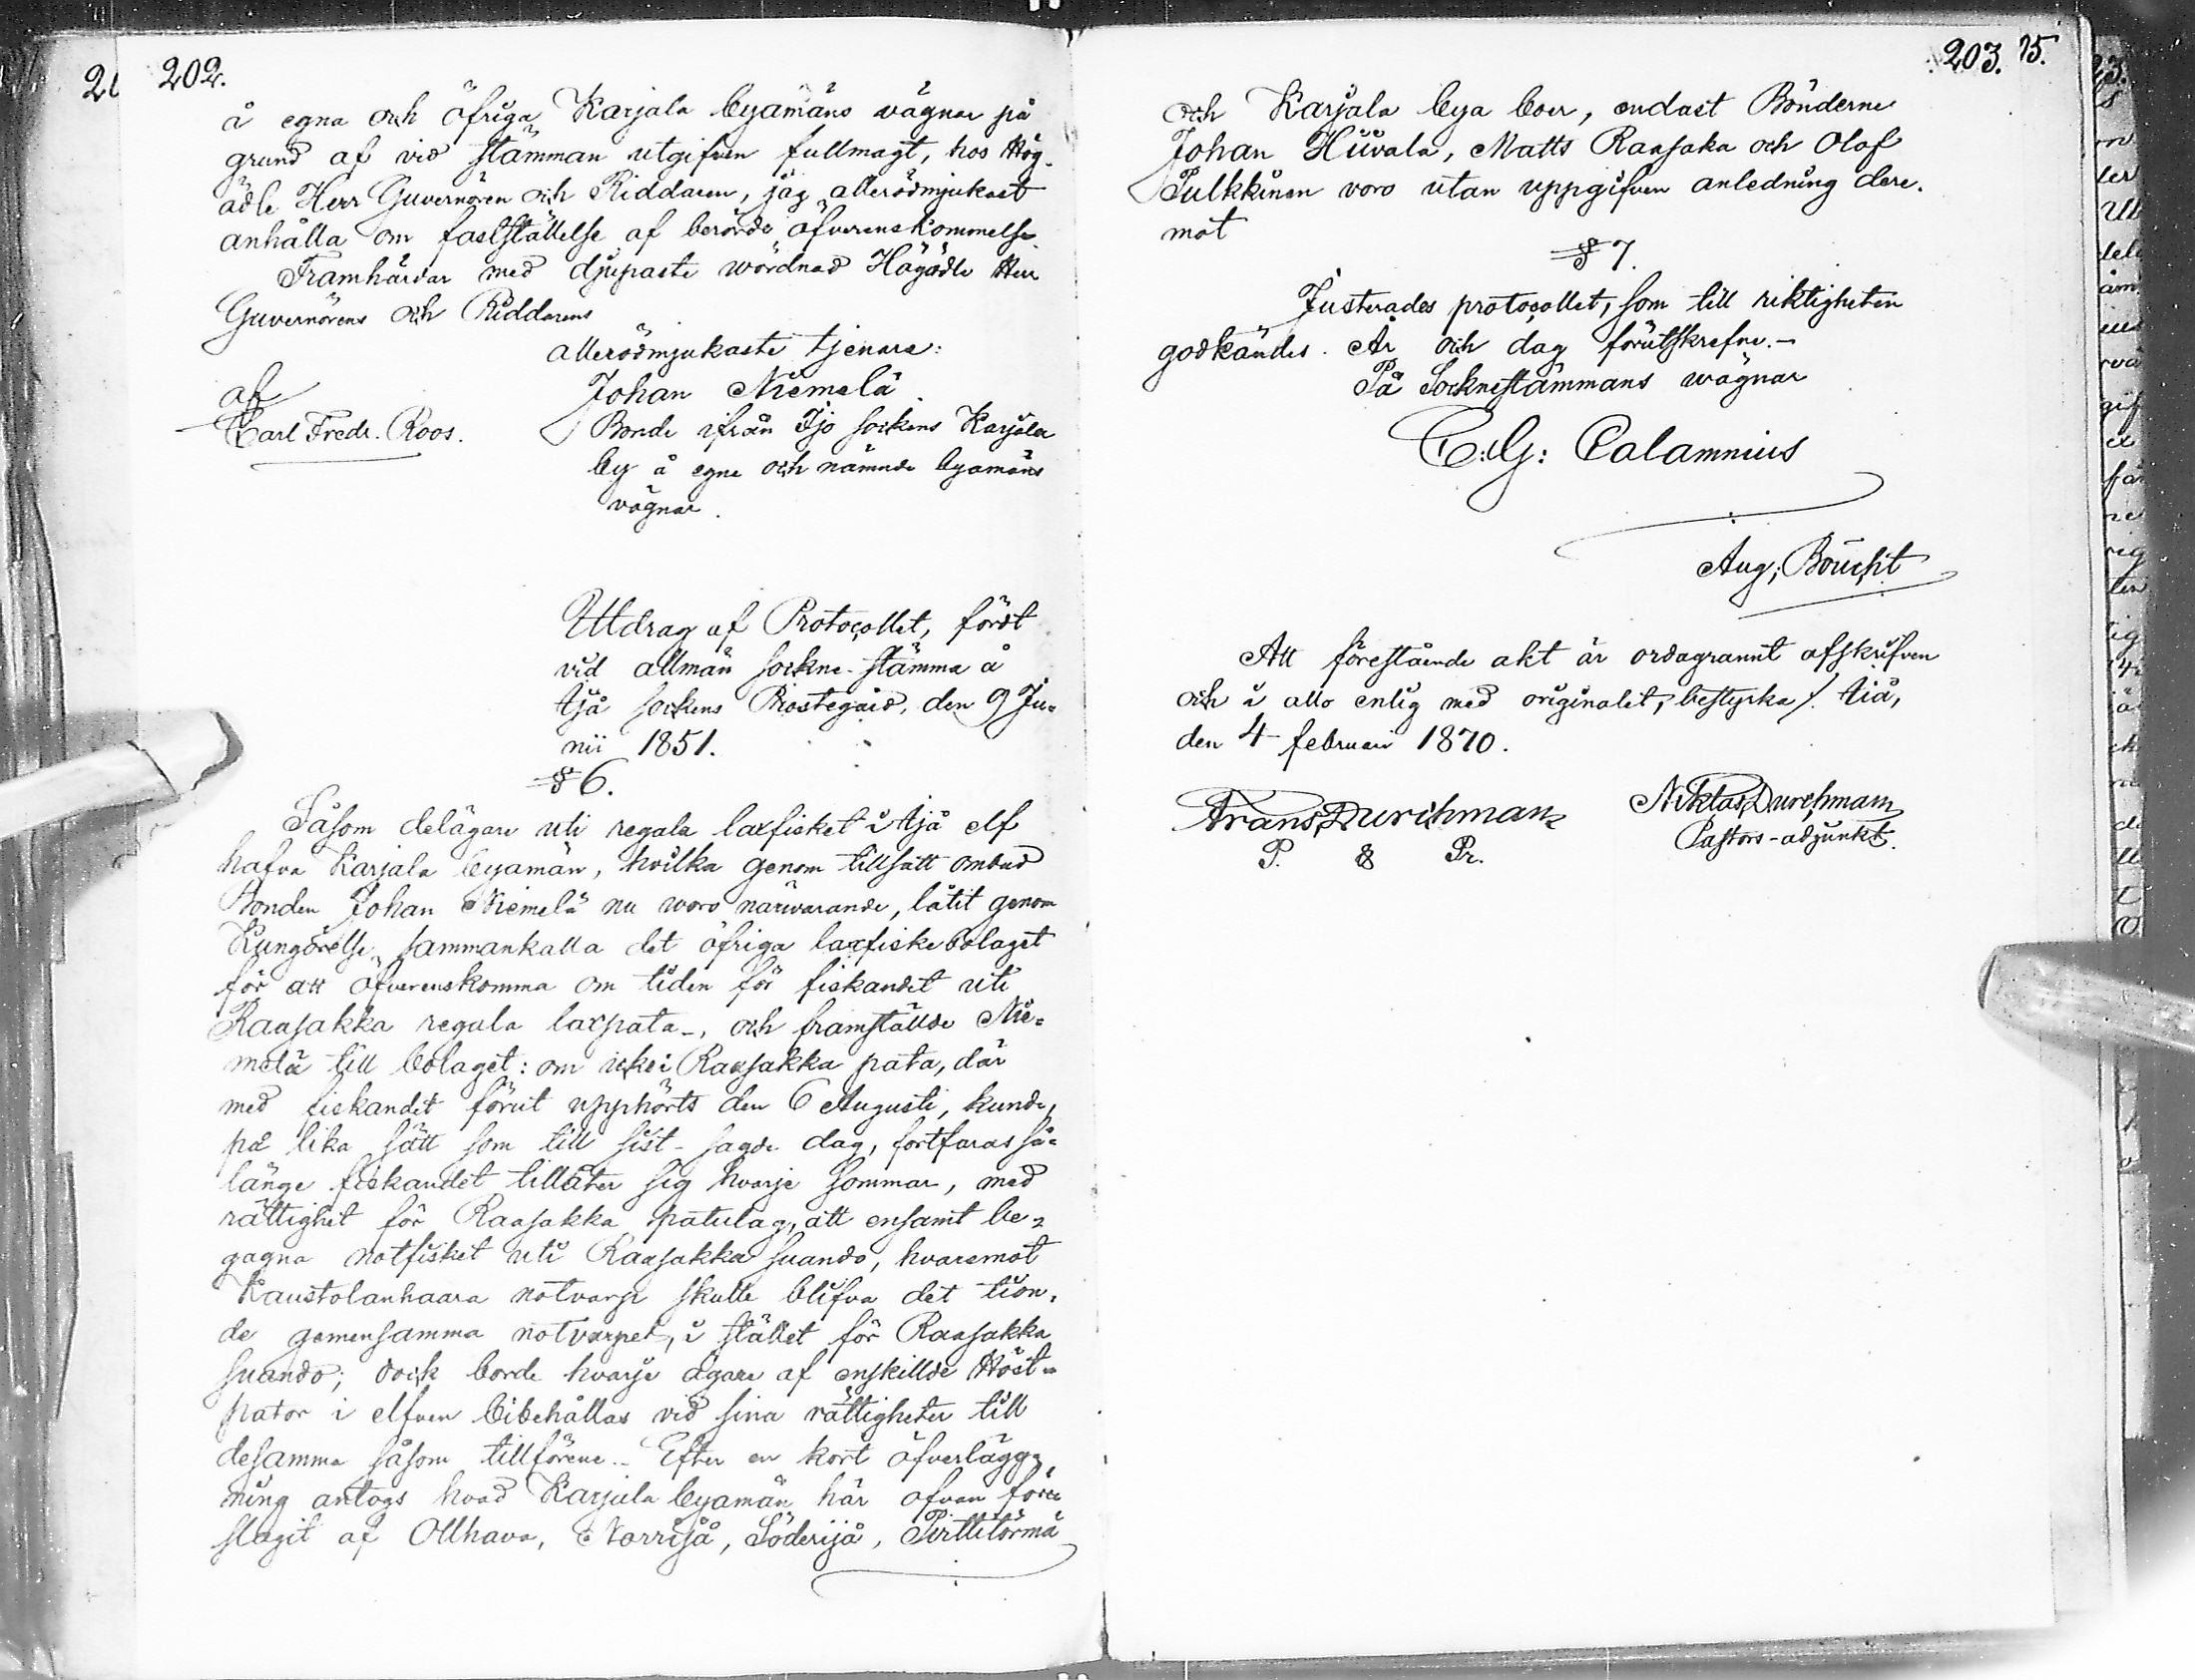 202.
å egna och öfriga Karjala byamäns vägnar på
grund af vid stämman utgifven fullmagt, hos Hög-
ädle Herr Guvernören och Riddaren, jag allerödmjukast
anhålla om fastställelse af berörde öfverenskommelse.
Framhärdar med djupaste wördnad Högädle Herr
Guvernörens och Riddarens
allerödmjukaste tjenare:
Johan Niemelä
af
Carl Fredr. Roos.
Bonde ifrån Ijo sockens Karjala
by å egne och nämnde byamäns
vägnar.
Utdrag af Protocollet, fördt
vid allmän sockne-stämma å
Ijå sockens Prostegård, den 9 Ju-
nii 1851.
§ 6.
Såsom delägare uti regala laxfisket i Ijå elf
hafva Karjala byamän, hvilka genom tillsatt ombud
Bonden Johan Niemelä nu woro närwarande, låtit genom
Kungörelse sammankalla det öfriga laxfiske bolaget
för att öfverenskomma om tiden för fiskandet uti
Raasakka regala laxpata-, och framställde Nie-
melä till bolaget: om icke i Raasakka pata, där
med fiskandet förut upphörts den 6 Augusti, kunde,
på lika sätt som till sist-sagde dag, fortfaras så-
länge fiskandet tillåter sig hvarje sommar, med
rättighet för Raasakka patulag, att ensamt be-
gagna notfisket uti Raasakka suando, hvaremot
Kaustolanhaara notvarp skulle blifva det tion-
de gemensamma notvarpet, i stället för Raasakka
suando; dock borde hvarje ägare af enskillde Höst-
pator i elfven bibehållas vid sina rättigheter till
desamma såsom tillförene.- Efter en kort öfverlägg-
ning antogs hvad Karjala byamän här ofvan före
slagit af Ollhava, Norrijå, Söderijå, Pirttitörmä
203. 75.
och Karjala bya boer, endast Bönderne
Johan Hiivala, Matts Raasaka och Olof
Pulkkinen voro utan uppgifven anledning dere-
mot
§ 7.
Justerades protocollet, som till riktigheten
godkändes. År och dag förutskrefne.-
På Socknestämmans wägnar
C: G: Calamnius
Aug; Boucht
Att förestående akt är ordagrannt afskrifven
och i allo enlig med originalet, bestyrka /. Ijå,
den 4 februari 1870.
Frans Durchman
P. & Pr.
Niklas Durchman
Pastors-adjunkt.